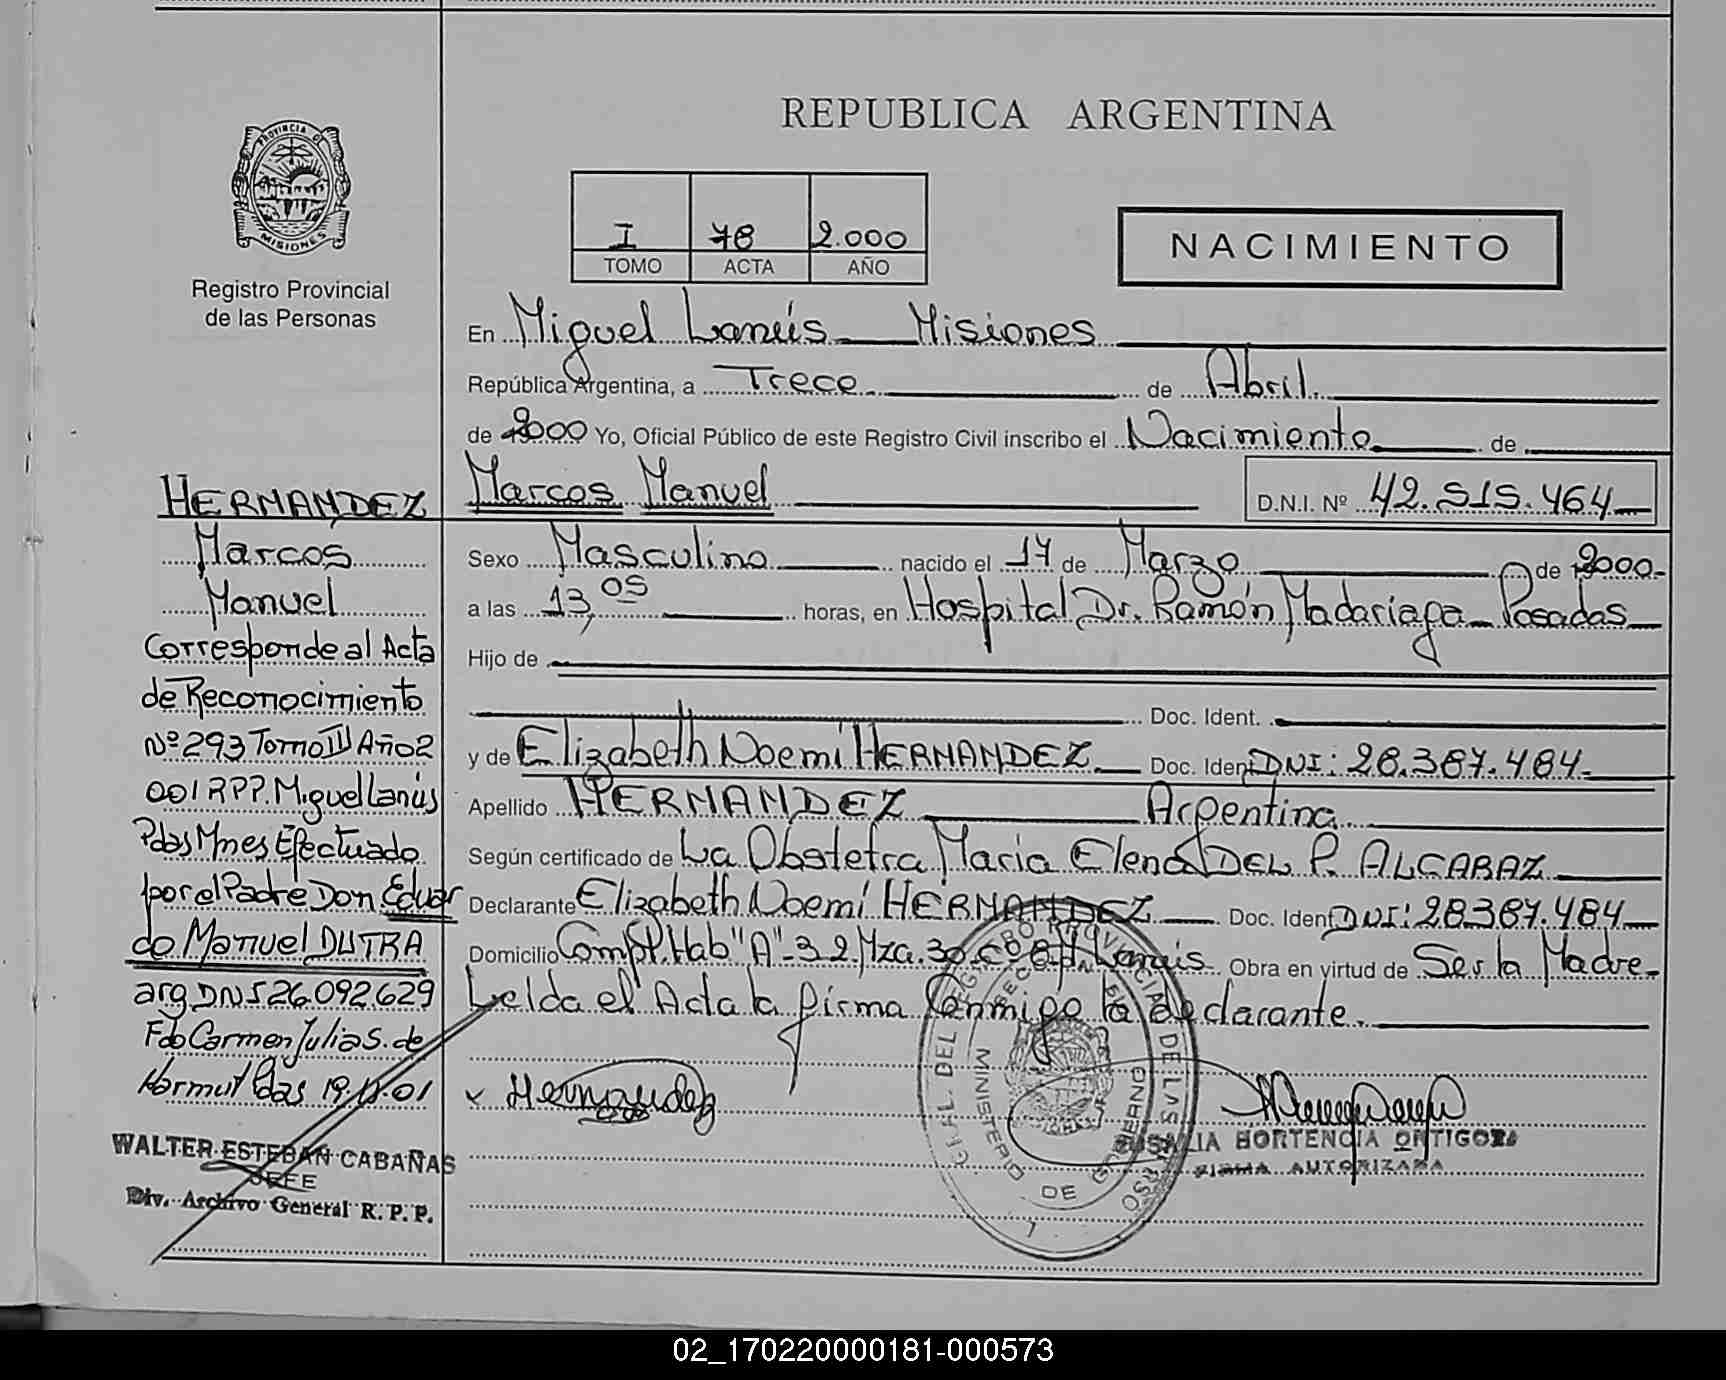 REPUBLICA ARGENTINA
PROVINCIA DE
MISIONES
Registro Provincial
de las Personas
I 78 2.000
TOMO ACTA AÑO
NACIMIENTO
En Miguel Lanús Misiones
República Argentina, a Trece de Abril.
de 2000 Yo, Oficial Público de este Registro Civil inscribo el Nacimiento de
Marcos Manuel D.N.I. Nº 42.515.464
Sexo Masculino nacido el 17 de Marzo de 2000
a las 13,05 horas, en Hospital Dr. Ramón Madariaga Posadas
Hijo de
Doc. Ident.
y de Elizabeth Noemí HERNANDEZ Doc. Ident DNI: 28.387.484
Apellido HERNANDEZ Argentina
Según certificado de La Obstetra Maria Elena DEL P. ALCARAZ
Declarante Elizabeth Noemí HERNANDEZ Doc. Ident DNI: 28387.484
Domicilio Compl. Hab "A"-32 Mza. 30 Lanús Obra en virtud de Ser la Madre
Leída el Acta la firma Conmigo la declarante.
x Hernandez
HORTENCIA ORTIGOZA
FIRMA AUTORIZADA
MINISTERIO DE GOBIERNO
HERNANDEZ
Marcos
Manuel
Corresponde al Acta
de Reconocimiento
Nº 293 Tomo III Año 2
001 RPP. Miguel Lanús
Pdas Mnes Efectuado
por el Padre Don Eduar
do Manuel DUTRA
arg DNI 26.092.629
Fdo Carmen Julia S. de
19.11.01
WALTER ESTEBAN CABAÑAS
JEFE
Div. Archivo General R. P. P.
02_170220000181-000573